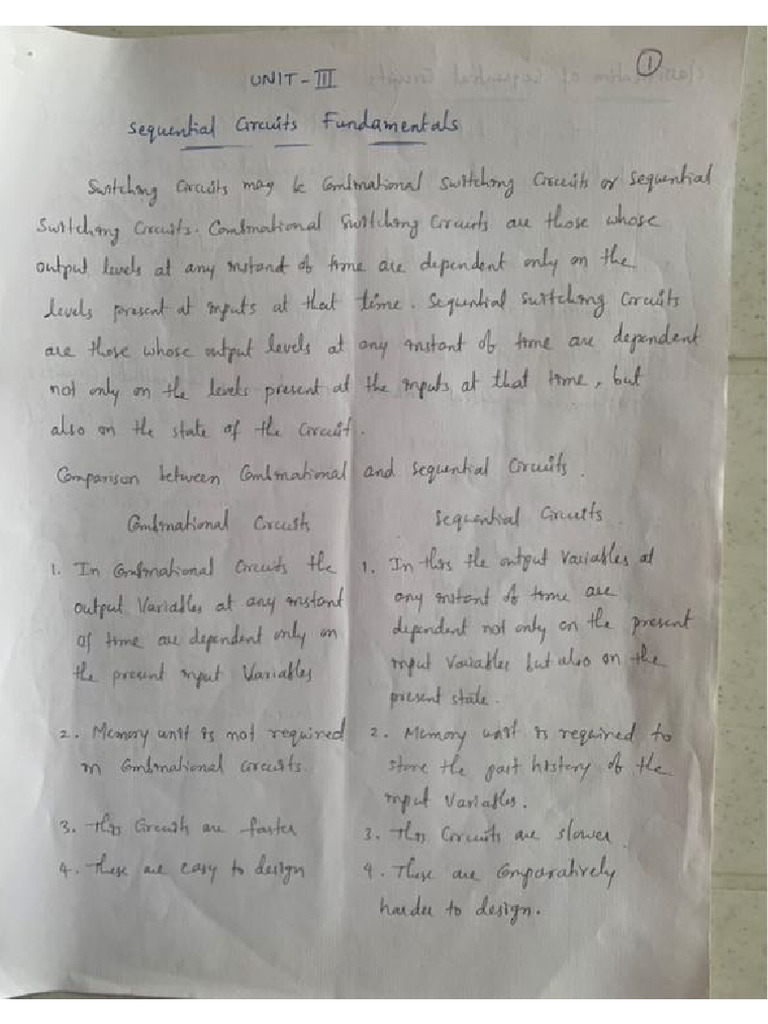 1
UNIT-III
Sequential Circuits Fundamentals
Switching Circuits may be Combinational Switching Circuits or Sequential
Switching Circuits. Combinational Switching Circuits are those whose
output levels at any instant of time are dependent only on the
levels present at inputs at that time. Sequential switching Circuits
are those whose output levels at any instant of time are dependent
not only on the levels present at the inputs at that time, but
also on the state of the circuit.
Comparison between Combinational and Sequential Circuits.
Combinational Circuits
Sequential Circuits
1. In Combinational Circuits the
output Variables at any instant
of time are dependent only on
the present input Variables
2. Memory unit is not required
in Combinational circuits.
3. This Circuits are faster
4. These are easy to design
1. In this the output Variables at
any instant of time are
dependent not only on the present
input Variables but also on the
present state.
2. Memory unit is required to
store the past history of the
input Variables.
3. This Circuits are slower.
4. These are Comparatively
harder to design.